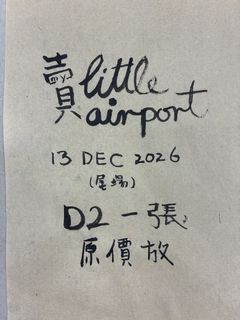 賣 my little
airport
13 DEC 2026
(尾場)
D2 一張
原價放